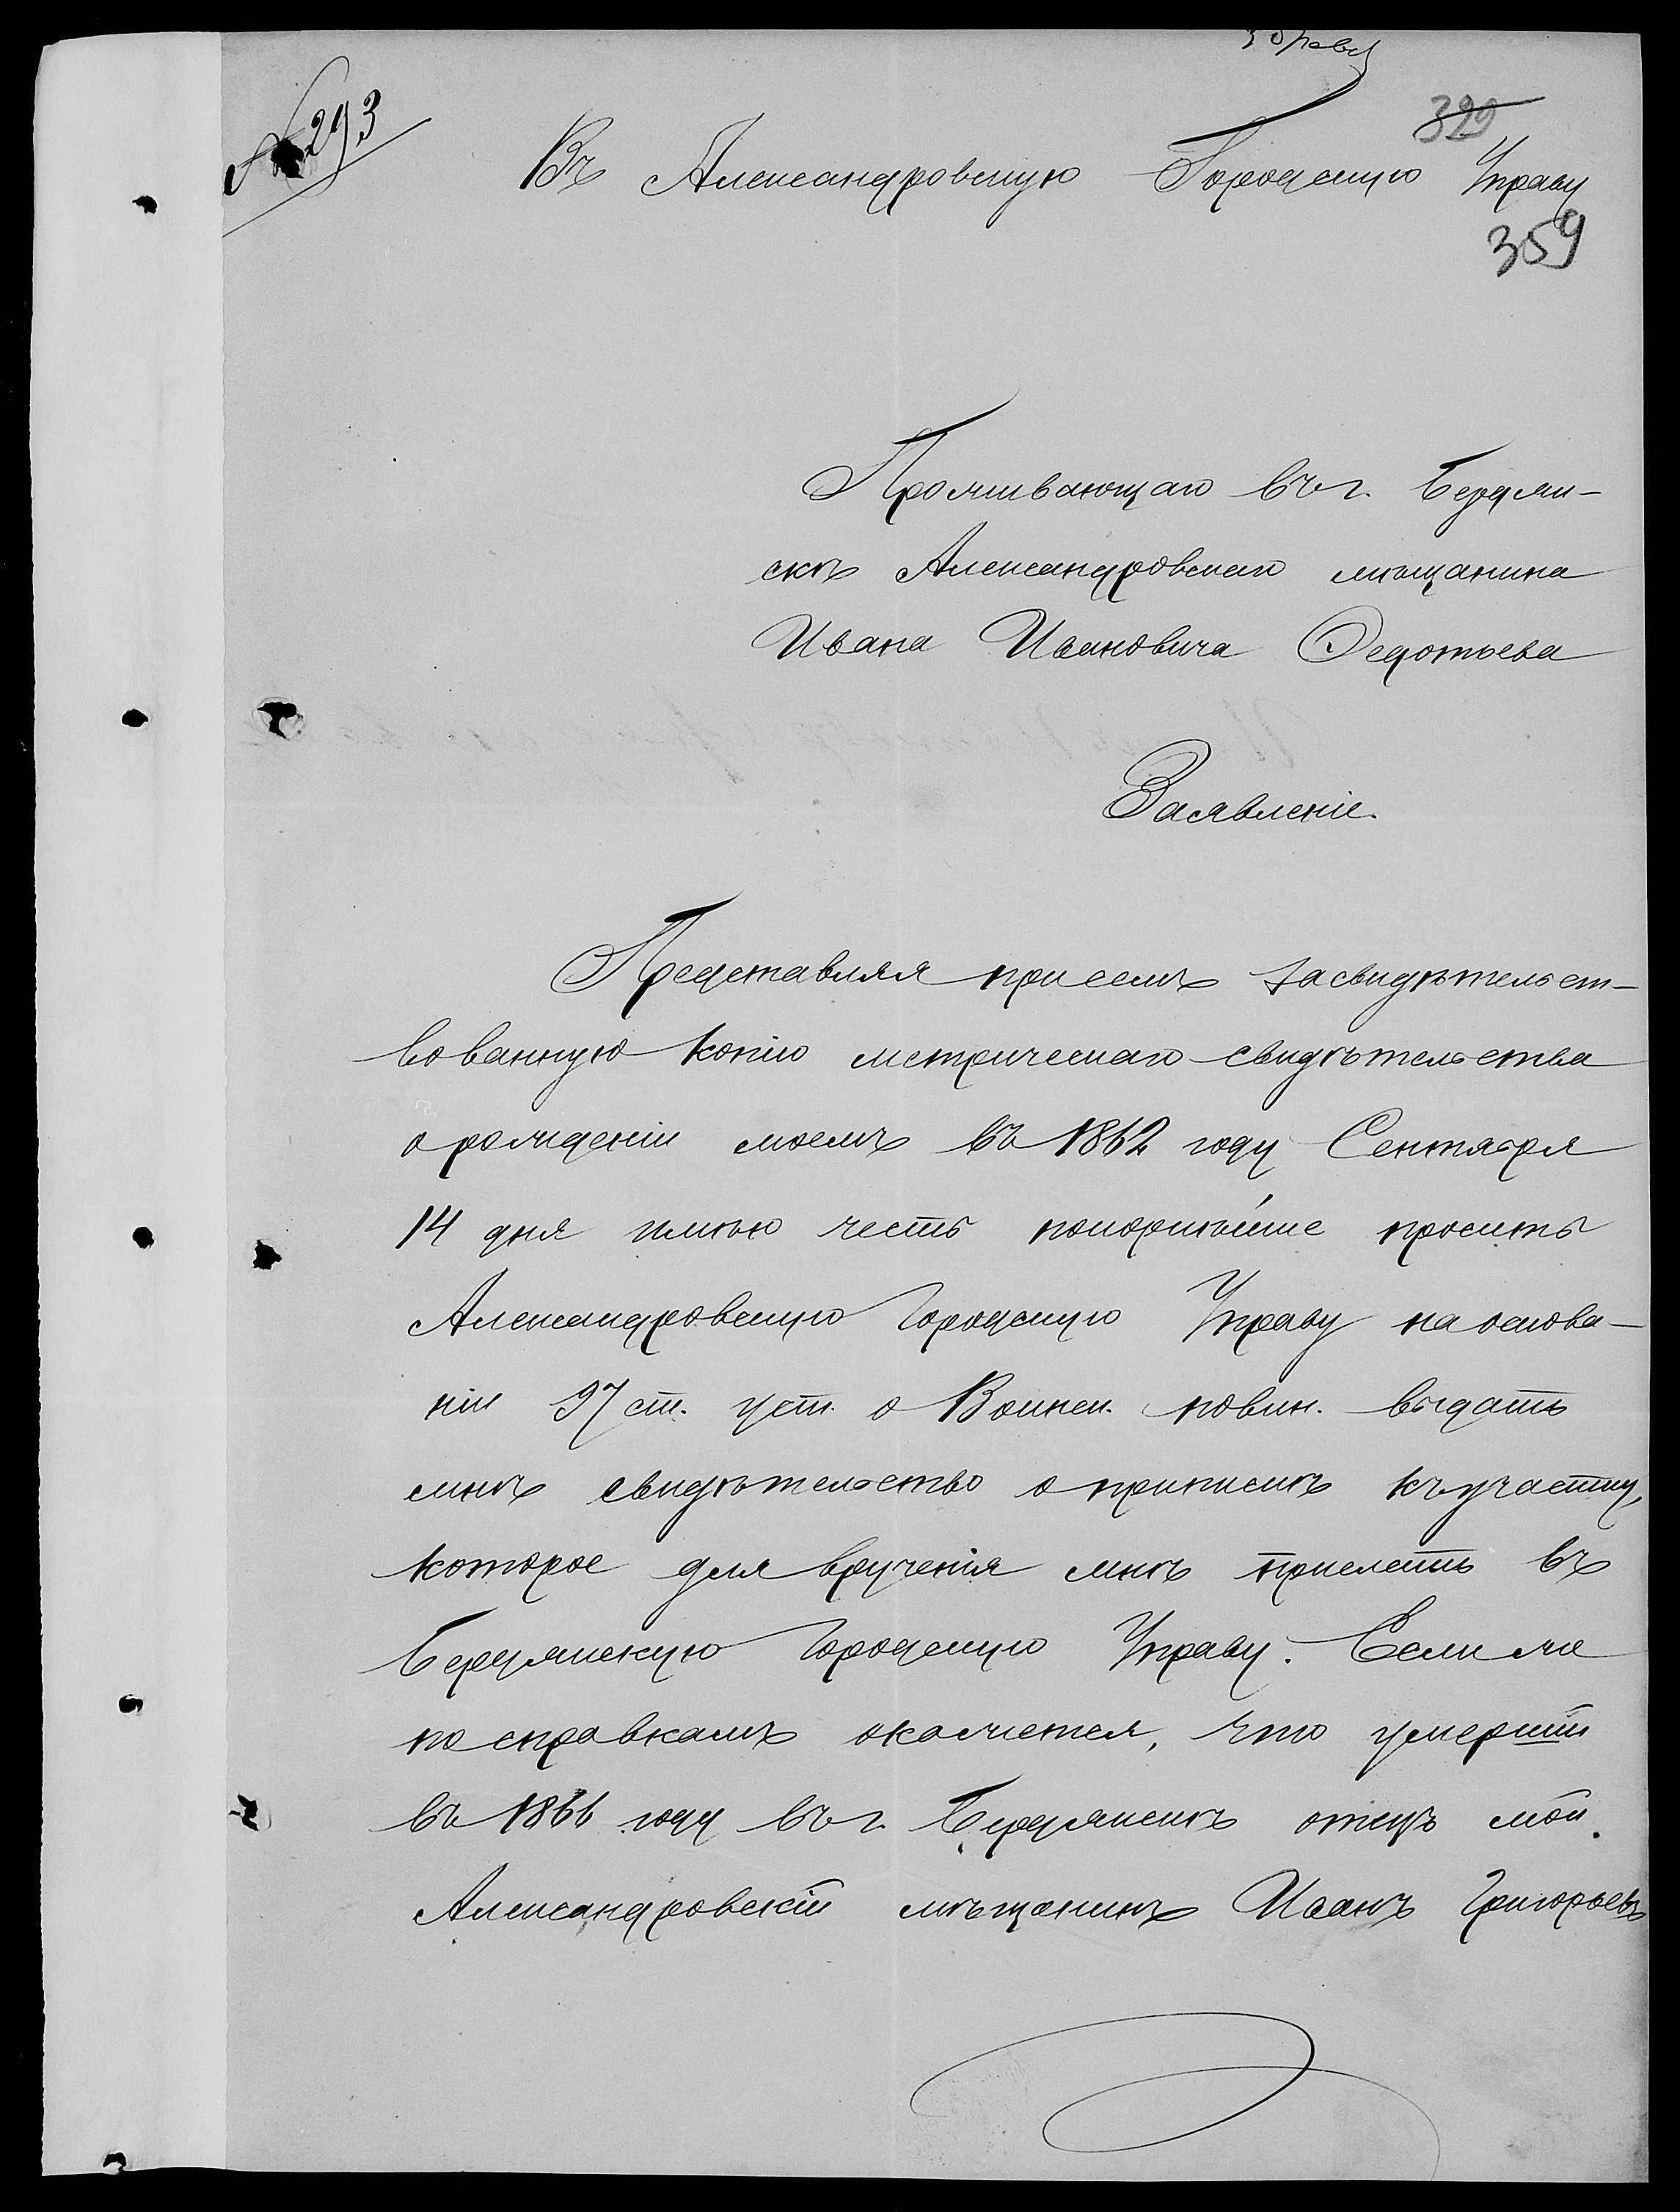 № 293
329
Въ Александровскую Городскую Управу
359
Проживающаго въ г. Бердян-
скѣ Александровскаго мѣщанина
Ивана Ивановича Федотьева
Заявленіе.
Представляя при семъ засвидѣтельст-
вованную копію метрическаго свидѣтельства
о рожденіи моемъ въ 1862 году Сентября
14 дня имѣю честь покорнѣйше просить
Александровскую Городскую Управу на основа-
ніи 97 ст. уст. о Воинск. повин. выдать
мнѣ свидѣтельство о припискѣ къ участку,
которое для врученія мнѣ прислать въ
Бердянскую Городскую Управу. Если же
по справкамъ окажется, что умершій
въ 1866 году въ г. Бердянскѣ отецъ мой
Александровскій мѣщанинъ Иванъ Григорьевъ